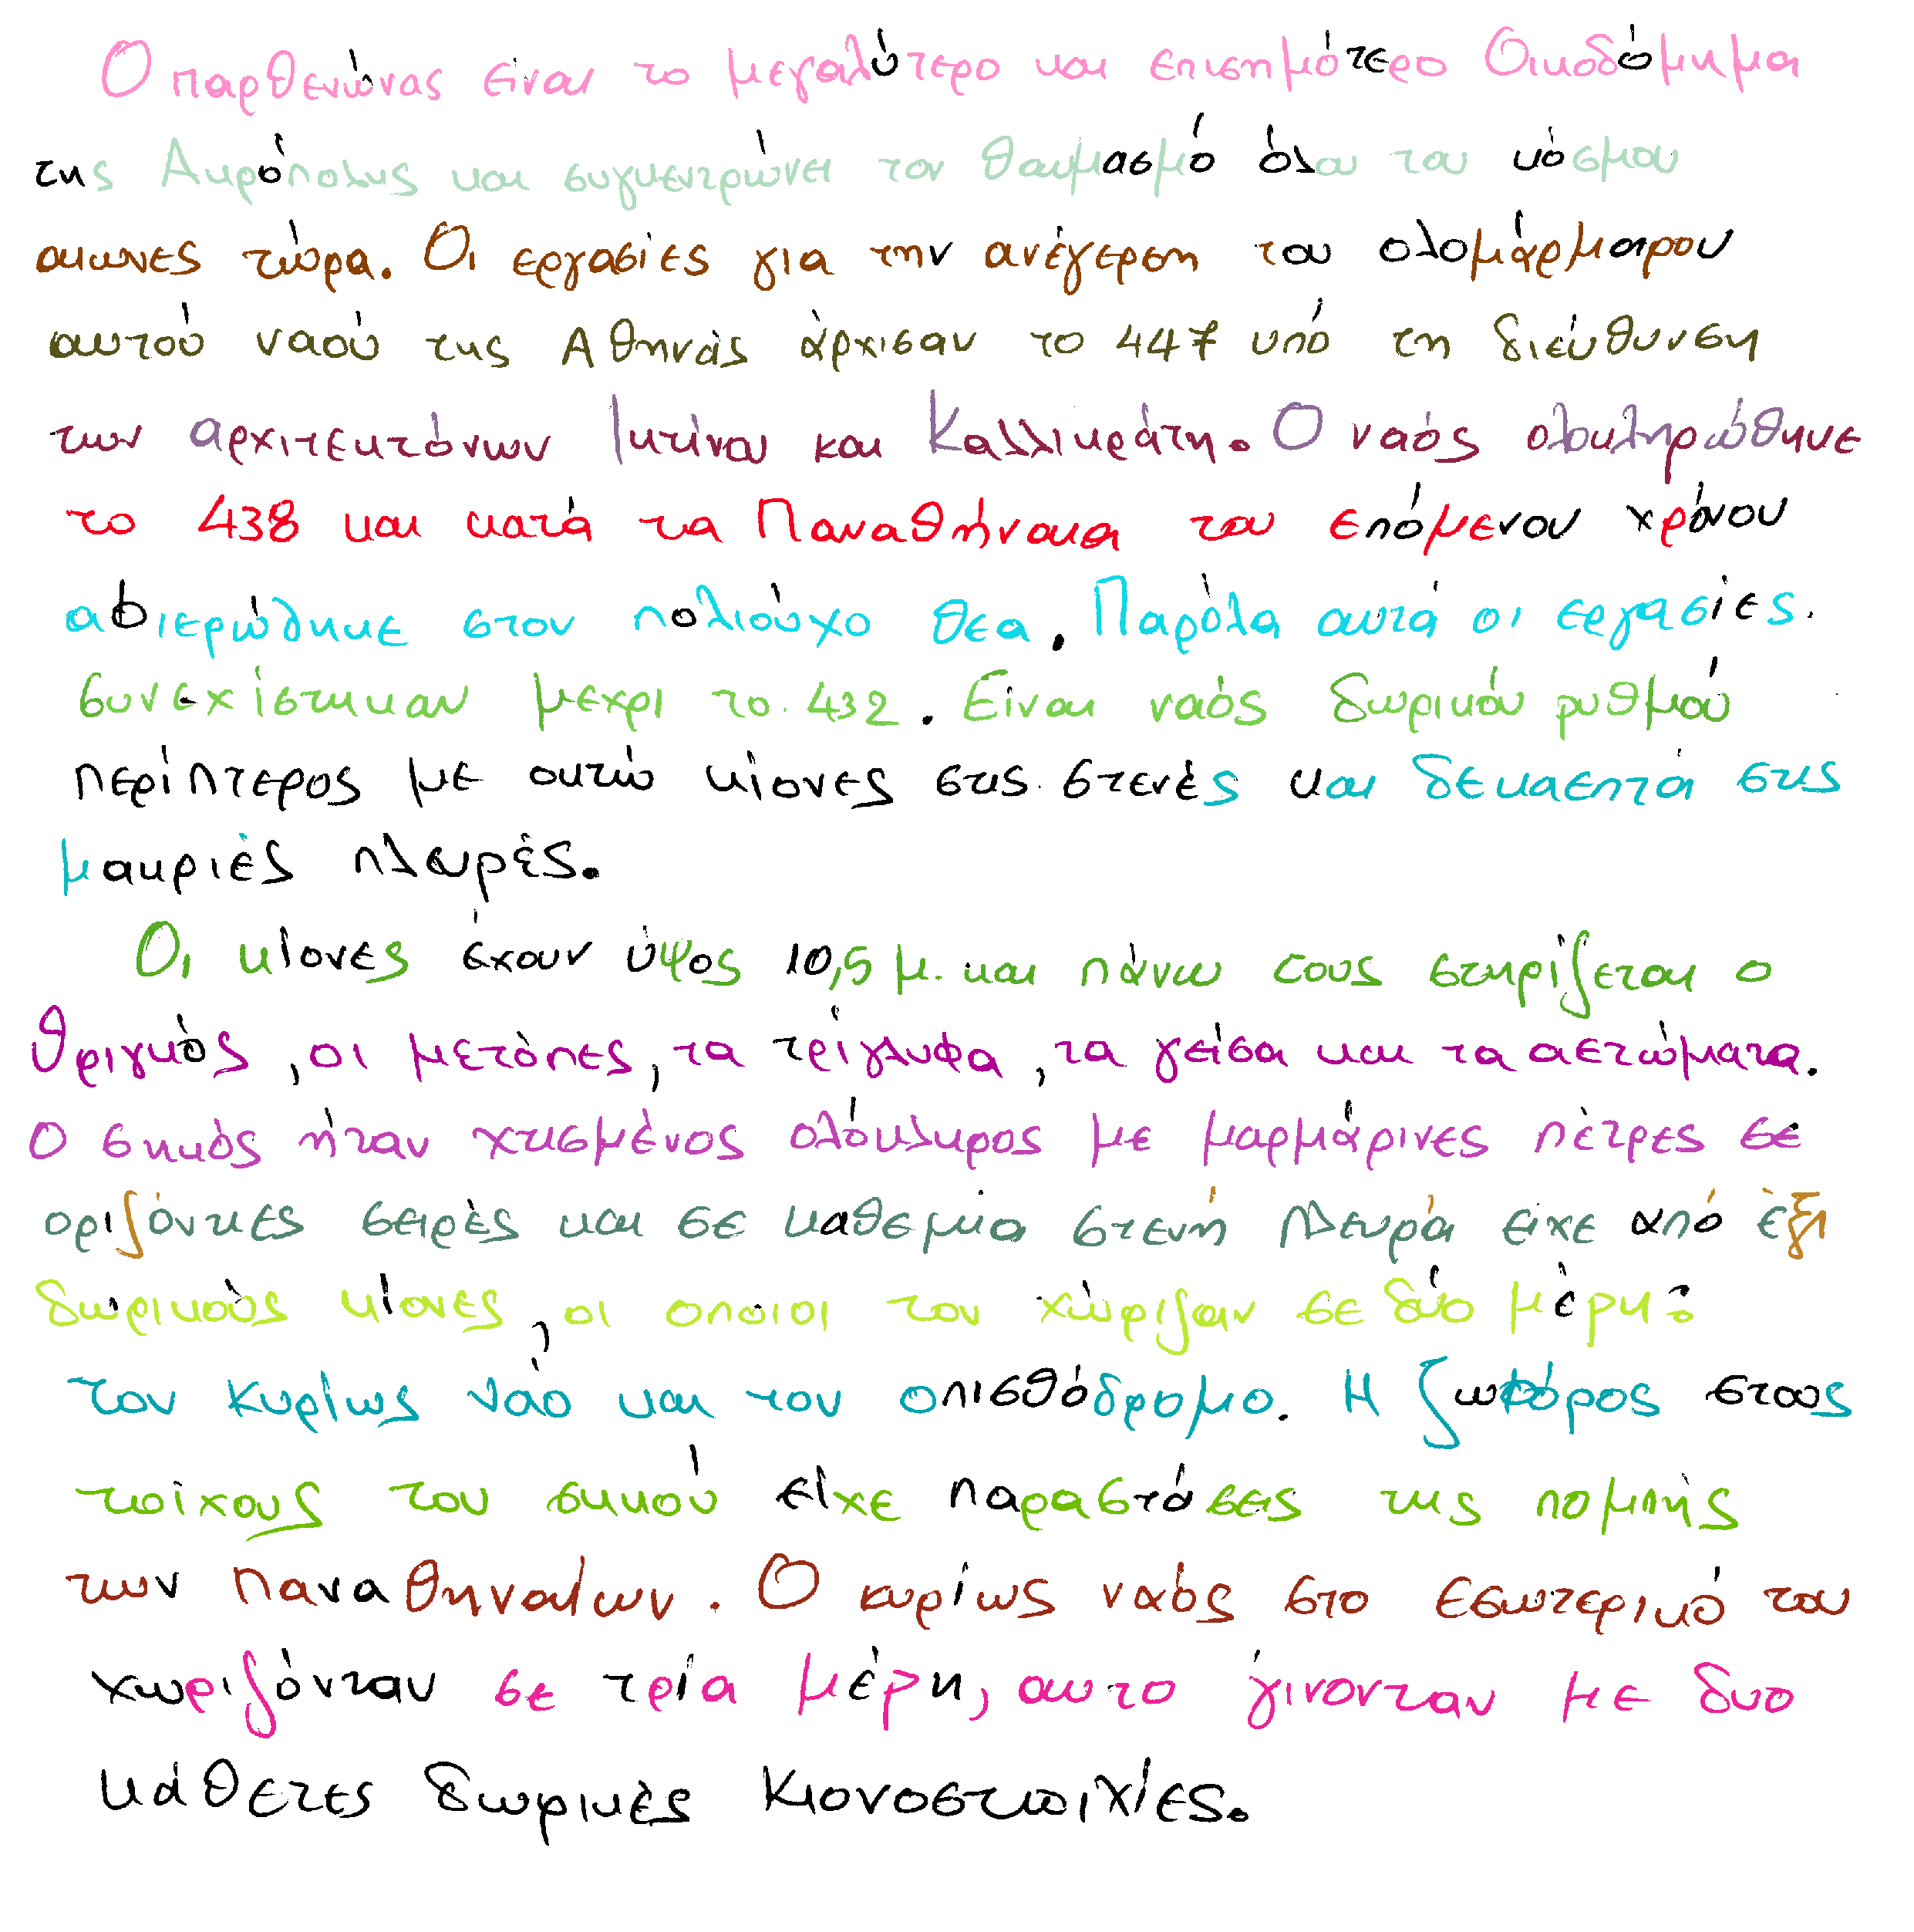 Ο παρθενώνας είναι το μεγαλύτερο και επισημότερο Οικοδόμημα
της Ακρόπολης και συγκεντρώνει τον θαυμασμό όλου του κόσμου
αιωνες τώρα. Οι εργασίες για την ανέγερση του ολομάρμαρου
αυτού ναού της Αθηνάς άρχισαν το 447 υπό τη διεύθυνση
των αρχιτεκτόνων Ικτίνου και Καλλικράτη. Ο ναός ολοκληρώθηκε
το 438 και κατά τα Παναθήναια του επόμενου χρόνου
αφιερώθηκε στον πολιούχο θεα. Παρόλα αυτά οι εργασίες.
συνεχίστηκαν μεχρι το. 432. Είναι ναός δωρικού ρυθμού
περίπτερος με οκτώ κίονες στις στενές και δεκαεπτά στις
μακριές πλευρές.
Οι κίονες έχουν ύψος 10,5 μ. και πάνω τους στηρίζεται ο
θριγκός, οι μετόπες, τα τρίγλυφα, τα γείσα και τα αετώματα.
Ο σηκός ήταν χτισμένος ολόκληρος με μαρμάρινες πέτρες σε
οριζόντιες σειρές και σε καθεμία στενή πλευρά ειχε από έξι
δωρικούς κίονες, οι οποιοι τον χώριζαν σε δύο μέρη:
τον κυρίως ναό και τον οπισθόδρομο. Η ζωφόρος στους
τοίχους του σηκού είχε παραστάσεις της πομπής
των Παναθηναίων. Ο κυρίως ναός στο εσωτερικό του
χωριζόνταν σε τρία μέρη, αυτο γίνονταν με δυο
κάθετες δωρικές κιονοστοιχίες.